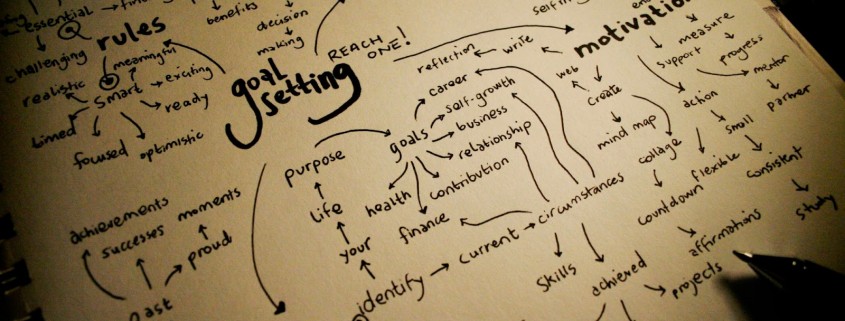 essential
benefits
decision
making
rules
challenging
meaningful
realistic
smart
exciting
ready
timed
focused
optimistic
goal
setting
REACH
ONE!
motivation
reflection
write
web
create
mind map
collage
countdown
support
measure
progress
mentor
partner
action
small
flexible
consistent
study
affirmations
projects
goals
career
self-growth
business
relationship
contribution
health
finance
purpose
life
your
identify
current
circumstances
skills
achieved
achievements
successes
moments
proud
past